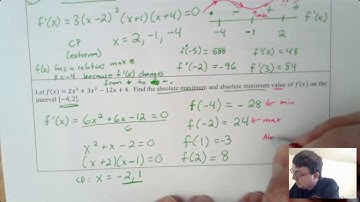 f'(x) = 3(x-2)³(x+1)(x+4) = 0
CP
(extrema)
x = 2, -1, -4
+ - + +
-4 -1 2
f'(x)
min
f'(-5) = 688
f'(0) = 48
f(x) has a relative max @
x = -4 because f'(x) changes
from + to -
f'(-2) = -96
f'(3) = 84
Let f(x) = 2x³ + 3x² − 12x + 4. Find the absolute maximum and absolute minimum value of f(x) on the
interval [−4,2].
f'(x) = 6x² + 6x - 12 = 0
6
x² + x - 2 = 0
(x + 2)(x - 1) = 0
CP: x = -2, 1
f(-4) = -28 ← min
f(-2) = 24 ← max
f(1) = -3
f(2) = 8